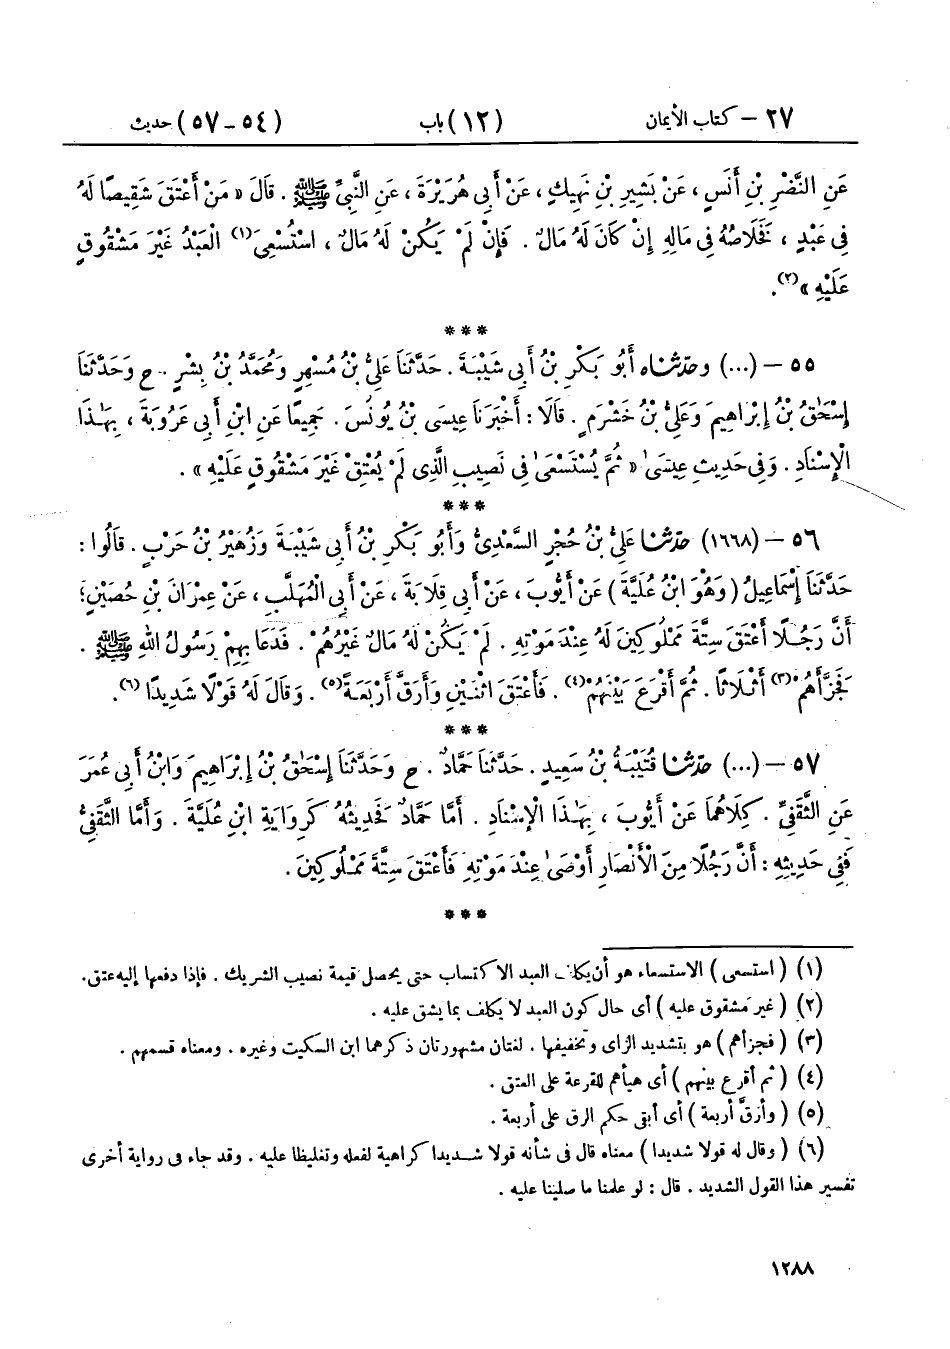 ٢٧ – كتاب الأيمان (١٢) باب (٥٤ – ٥٧) حديث
عَنِ النَّضْرِ بْنِ أَنَسٍ ، عَنْ بَشِيرِ بْنِ نَهِيكٍ ، عَنْ أَبِي هُرَيْرَةَ ، عَنِ النَّبِيِّ ﷺ . قَالَ « مَنْ أَعْتَقَ شَقِيصًا لَهُ
فِي عَبْدٍ ، فَخَلَاصُهُ فِي مَالِهِ إِنْ كَانَ لَهُ مَالٌ . فَإِنْ لَمْ يَكُنْ لَهُ مَالٌ ، اسْتُسْعِيَ(١) الْعَبْدُ غَيْرَ مَشْقُوقٍ
عَلَيْهِ »(٢).
***
٥٥ – (...) وحَدَّثَنَاه أَبُو بَكْرِ بْنُ أَبِي شَيْبَةَ . حَدَّثَنَا عَلِيُّ بْنُ مُسْهِرٍ وَمُحَمَّدُ بْنُ بِشْرٍ . ح وَحَدَّثَنَا
إِسْحَٰقُ بْنُ إِبْرَاهِيمَ وَعَلِيُّ بْنُ خَشْرَمٍ . قَالَا : أَخْبَرَنَا عِيسَى بْنُ يُونُسَ . جَمِيعًا عَنِ ابْنِ أَبِي عَرُوبَةَ ، بِهَٰذَا
الْإِسْنَادِ . وَفِي حَدِيثِ عِيسَىٰ « ثُمَّ يُسْتَسْعَىٰ فِي نَصِيبِ الَّذِي لَمْ يُعْتِقْ غَيْرَ مَشْقُوقٍ عَلَيْهِ » .
***
٥٦ – (١٦٦٨) حَدَّثَنَا عَلِيُّ بْنُ حُجْرٍ السَّعْدِيُّ وَأَبُو بَكْرِ بْنُ أَبِي شَيْبَةَ وَزُهَيْرُ بْنُ حَرْبٍ . قَالُوا :
حَدَّثَنَا إِسْمَاعِيلُ ( وَهُوَ ابْنُ عُلَيَّةَ ) عَنْ أَيُّوبَ ، عَنْ أَبِي قِلَابَةَ ، عَنْ أَبِي الْمُهَلَّبِ ، عَنْ عِمْرَانَ بْنِ حُصَيْنٍ ؛
أَنَّ رَجُلًا أَعْتَقَ سِتَّةَ مَمْلُوكِينَ لَهُ عِنْدَ مَوْتِهِ . لَمْ يَكُنْ لَهُ مَالٌ غَيْرُهُمْ . فَدَعَا بِهِمْ رَسُولُ اللهِ ﷺ .
فَجَزَّأَهُمْ(٣) أَثْلَاثًا . ثُمَّ أَقْرَعَ بَيْنَهُمْ(٤) . فَأَعْتَقَ اثْنَيْنِ وَأَرَقَّ أَرْبَعَةً(٥) . وَقَالَ لَهُ قَوْلًا شَدِيدًا (٦).
***
٥٧ – (...) حَدَّثَنَا قُتَيْبَةُ بْنُ سَعِيدٍ . حَدَّثَنَا حَمَّادٌ . ح وَحَدَّثَنَا إِسْحَٰقُ بْنُ إِبْرَاهِيمَ وَابْنُ أَبِي عُمَرَ
عَنِ الثَّقَفِيِّ . كِلَاهُمَا عَنْ أَيُّوبَ ، بِهَٰذَا الْإِسْنَادِ . أَمَّا حَمَّادٌ فَحَدِيثُهُ كَرِوَايَةِ ابْنِ عُلَيَّةَ . وَأَمَّا الثَّقَفِيُّ
فَفِي حَدِيثِهِ : أَنَّ رَجُلًا مِنَ الْأَنْصَارِ أَوْصَىٰ عِنْدَ مَوْتِهِ فَأَعْتَقَ سِتَّةَ مَمْلُوكِينَ .
***
(١) ( استسعى ) الاستسعاء هو أن يكلف العبد الاكتساب حتى يحصل قيمة نصيب الشريك . فإذا دفعها إليه عتق.
(٢) ( غير مشقوق عليه ) أى حال كون العبد لا يكلف بما يشق عليه .
(٣) ( فجزأهم ) هو بتشديد الزاى وتخفيفها . لغتان مشهورتان ذكرهما ابن السكيت وغيره . ومعناه قسمهم .
(٤) ( ثم أقرع بينهم ) أى هيأهم للقرعة على العتق .
(٥) ( وأرقّ أربعة ) أى أبقى حكم الرق على أربعة .
(٦) ( وقال له قولا شديدا ) معناه قال فى شأنه قولا شديدا كراهية لفعله وتغليظا عليه . وقد جاء فى رواية أخرى
تفسير هذا القول الشديد . قال : لو علمنا ما صلينا عليه .
١٢٨٨